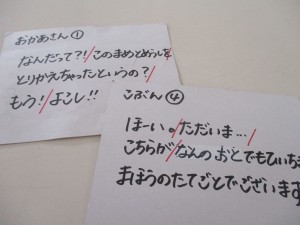 おかあさん①
なんだって?!/このまめとめうしを
とりかえちゃったというの?/
もう!/よこし!!
こぶん④
ほーい。/ただいま…/
こちらが/なんのおとでもひいちま
まほうのたてごとでございます